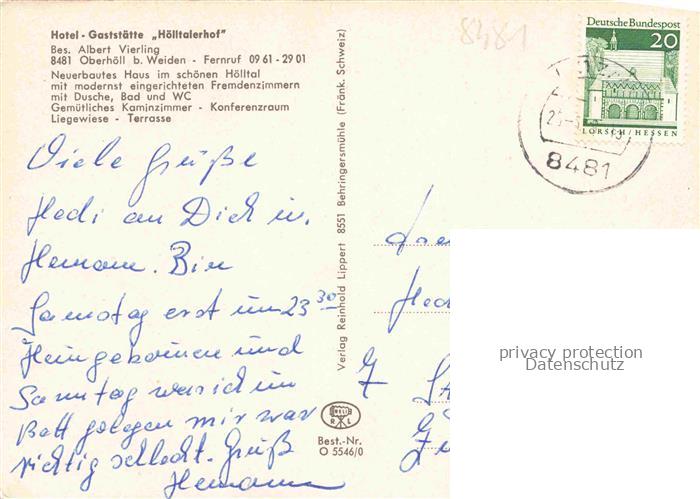 Hotel - Gaststätte „Hölltalerhof"
Bes. Albert Vierling
8481 Oberhöll b. Weiden - Fernruf 09 61 - 29 01
Neuerbautes Haus im schönen Hölltal
mit modernst eingerichteten Fremdenzimmern
mit Dusche, Bad und WC
Gemütliches Kaminzimmer - Konferenzraum
Liegewiese - Terrasse
Viele Grüße
Hedi an Dich u.
Hemann. Bin
Samstag erst um 23 30
Heimgekommen und
Sonntag war ich im
Bett gelegen mir war
richtig schlecht. Gruß
Hemann
Verlag Reinhold Lippert 8551 Behringersmühle (Fränk. Schweiz)
RELI
R L
Best.-Nr.
O 5546/0
8481
Deutsche Bundespost
20
LORSCH/HESSEN
8481
privacy protection
Datenschutz